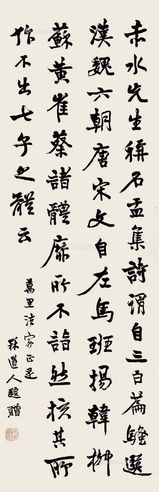 赤水先生稱石盂集詩謂自三百篇騷選
漢魏六朝唐宋文自左馬班揚韓柳
蘇黃崔蔡諸體靡所不詣然核其所
作不出七子之體云
萬里法家正之
道人 贈